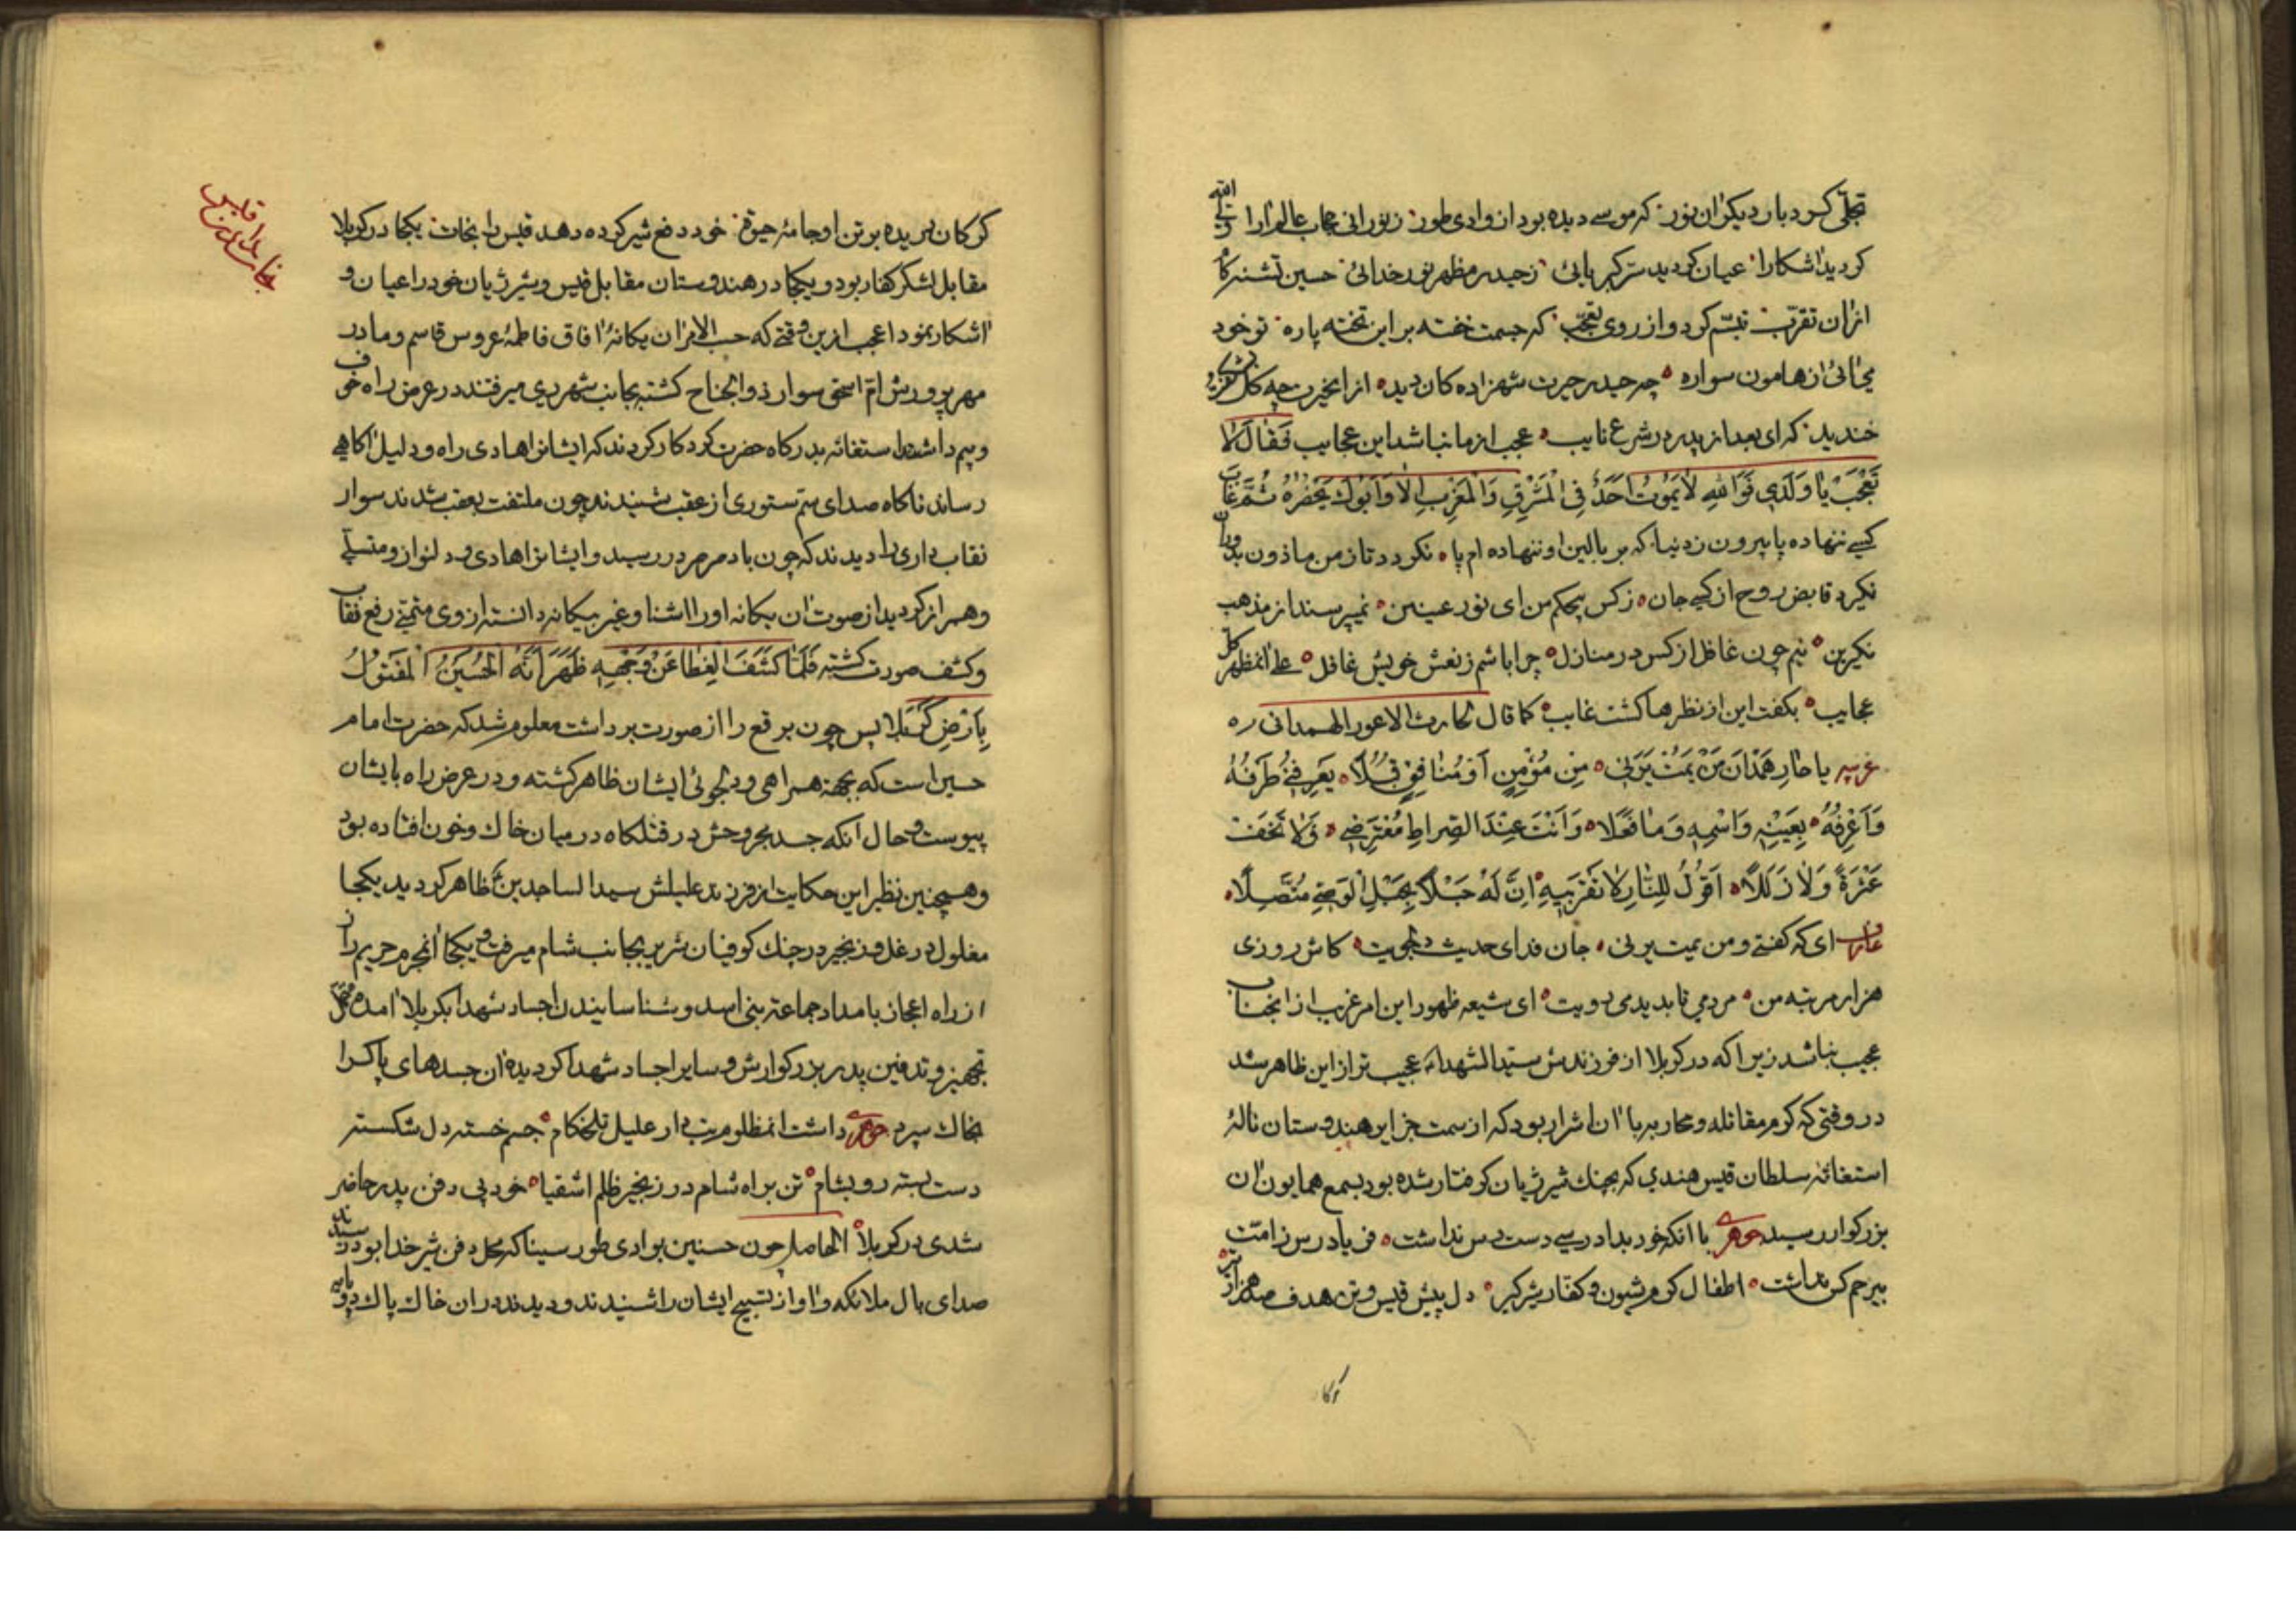 تجلّی کرد بار دیکر ان نور که موسی دیده بود از وادی طور ز نورانی حجاب عالم ارا
کردید اشکارا عیان کردید سرّ کبریائی ز حیدر مظهر نور خدائی حسین تشنه کام
از ان تقرّب تبسّم کرد و از روی تعجّب که جسمت خفته بر این تخته پاره تو خود
می ائی از هامون سواره چه حیدر حیرت شهزاده کان دید از انحیرت چه کل
خندید که ای بعد از پدر در شرع نایب عجب از ما نباشد این عجایب فَقالَ لا
تَعْجَبْ یا وَلَدِی فَوَاللهِ لا یَمُوتُ اَحَدٌ فِی الْمَشْرِقِ وَالْمَغْرِبِ اِلّا وَاَبُوكَ یَحْضُرُهُ ثُمَّ غابَ
کسی ننهاده پا بیرون ز دنیا که بر بالین او ننهاده ام پا نکردد تا ز من ماذون
نکیرد قابض روح از کسی جان ز کس بیحکم من ای نور عینین نمیپرسند از مذهب
نکیرین نیم چون غافل از کس در منازل چرا باشم ز نعش خویش غافل علی انمظهر کل
عجایب بکفت این از نظرها کشت غایب کما قال لحارث الاعور الهمدانی ره
عربیه یا حارِ هَمْدانَ مَنْ یَمُتْ یَرَنِی مِنْ مُؤْمِنٍ اَوْ مُنافِقٍ قُبُلًا یَعْرِفُنِی طَرْفُهُ
وَاَعْرِفُهُ بِعَیْنِهِ وَاسْمِهِ وَما فَعَلا وَاَنْتَ عِنْدَ الصِراطِ مُعْتَرِضِی وَلا تَخَفْ
عَثْرَةً وَلا زَلَلًا اَقُولُ لِلنّارِ لا تَقْرَبِیهِ اِنَّ لَهُ حَبْلًا بِحَبْلِ الْوَصِیِّ مُتَّصِلًا
ای که کفتی و من یمت یرنی جان فدای حدیث دلجویت کاش روزی
هزار مرتبه من مردمی تا بدیدمی رویت ای شیعه ظهور این امر غریب از انجناب
عجیب نباشد زیرا که در کربلا از فرزندش سیّد الشهداء عجیب تر از این ظاهر شد
در وقتی که کرم مقاتله و محاربه با ان اشرار بود که از سمت جزایر هندوستان نالۀ
استغاثۀ سلطان قیس هندی که بچنك شیر ژیان کرفتار شده بود بسمع همایون ان
بزرکوار رسید جوهری با انکه خود بداد رسی دست رس نداشت فریاد رس ز امّت
بیرحم کس نداشت اطفال کرم شیون و کفّار شیر کیر دل پیش قیس و تن هدف صد هزار تیر
کرکان دریده بر تن او جامۀ حیوة خود دفع شیر کرده دهد قیس را نجات یکجا در کربلا
مقابل لشکر کفار بود و یکجا در هندوستان مقابل قیس و شیر ژیان خود را عیان و
اشکار نمود اعجب از این وقتی که حسب الامر ان یکانۀ افاق فاطمۀ عروس قاسم و مادر
مهر پرورش امّ اسحق سوار ذوالجناح کشته بجانب شهر ری میرفتند در عرض راه خوف
و بیم داشتند استغاثه بدرکاه حضرت کردکار کردند که ایشانرا هادی راه و دلیل اکاهی
رساند ناکاه صدای سم ستوری از عقب شنیدند چون ملتفت بعقب شدند سوار
نقاب داری را دیدند که چون باد صرصر در رسید و ایشانرا هادی و دلنواز و متسلّی
و همراز کردید از صوت ان یکانه او را اشنا و غیر بیکانه دانسته از وی متمنّی رفع نقاب
و کشف صورت کشته فَلَمّا کَشَفَ الْغِطا عَنْ وَجْهِهِ ظَهَرَ اَنَّهُ الْحُسَیْنُ الْمَقْتُولُ
بِاَرْضِ کَرْبَلا پس چون برقع را از صورت برداشت معلوم شد که حضرت امام
حسین است که بجهة همراهی و دلجوئی ایشان ظاهر کشته و در عرض راه بایشان
پیوست و حال انکه جسد مجروحش در قتلکاه در میان خاك و خون افتاده بود
و همچنین نظیر این حکایت از فرزند علیلش سید الساجدین ع ظاهر کردید یکجا
مغلول در غل و زنجیر در چنك کوفیان شریر بجانب شام میرفت و یکجا انمحرم حریم راز
از راه اعجاز بامداد جماعتۀ بنی اسد و شناسانیدن اجساد شهدا بکربلا امده
تجهیز و تدفین پدر بزرکوارش و سایر اجساد شهدا کردیده ان جسدهای پاکرا
بخاك سپرد جوهری داشت انمظلوم تب دار علیل تلخکام جسم خسته دل شکسته
دست بسته رو بشام تن براه شام در زنجیر ظلم اشقیا خود پی دفن پدر حاضر
شدی در کربلا الحاصل چون حسنین بوادی طور سینا که محل دفن شیر خدا بود رسیدند
صدای بال ملائکه و اواز تسبیح ایشان را شنیدند و دیدند در ان خاك پاك